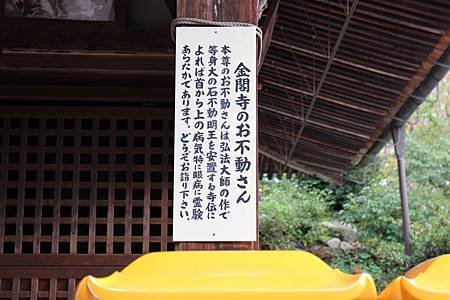 金閣寺のお不動さん
本尊のお不動さんは弘法大師の作で
等身大の石不動明王を安置する寺伝に
よれば首から上の病気特に眼病に霊験
あらたかであります。どうぞお詣り下さい。